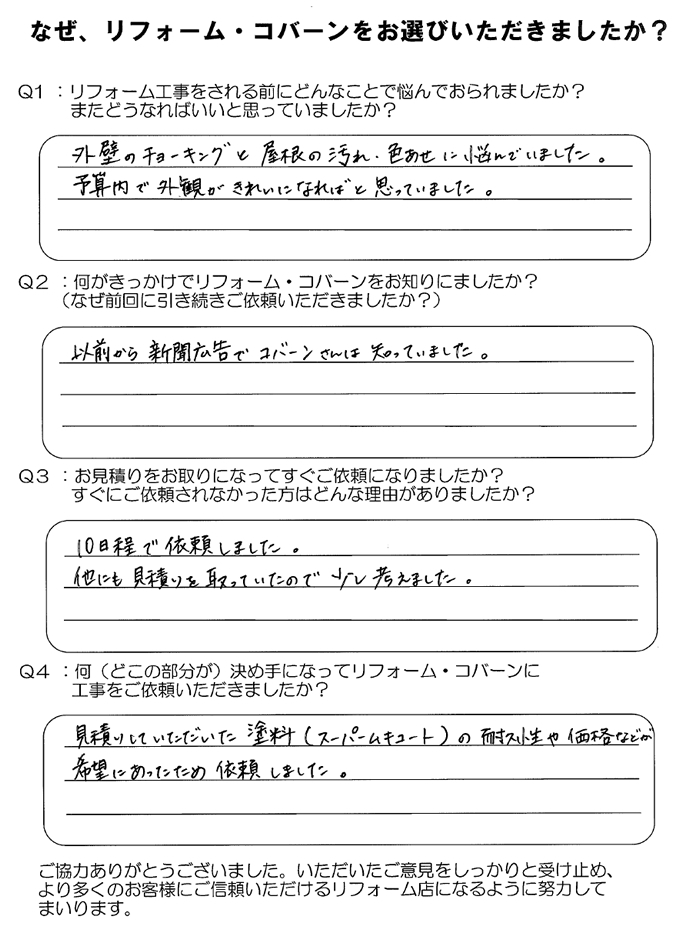 なぜ、リフォーム・コバーンをお選びいただきましたか？
Q1 ：リフォーム工事をされる前にどんなことで悩んでおられましたか？
またどうなればいいと思っていましたか？
外壁のチョーキングと屋根の汚れ・色あせに悩んでいました。
予算内で外観がきれいになればと思っていました。
Q2 ：何がきっかけでリフォーム・コバーンをお知りにましたか？
（なぜ前回に引き続きご依頼いただきましたか？）
以前から新聞広告でコバーンさんは知っていました。
Q3 ：お見積りをお取りになってすぐご依頼になりましたか？
すぐにご依頼されなかった方はどんな理由がありましたか？
10日程で依頼しました。
他にも見積りを取っていたので少し考えました。
Q4 ：何（どこの部分が）決め手になってリフォーム・コバーンに
工事をご依頼いただきましたか？
見積りしていただいた塗料（スーパームキュート）の耐久性や価格などが
希望にあったため依頼しました。
ご協力ありがとうございました。いただいたご意見をしっかりと受け止め、
より多くのお客様にご信頼いただけるリフォーム店になるように努力して
まいります。